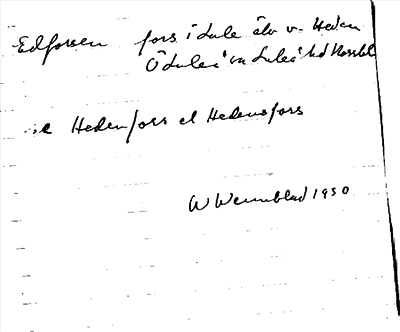 Edforsen fors i Lule älv v. Heden
Ö Luleå sn Luleå hd Norrbl
i.e Hedenfors el Hedensfors
W Wennblad 1930